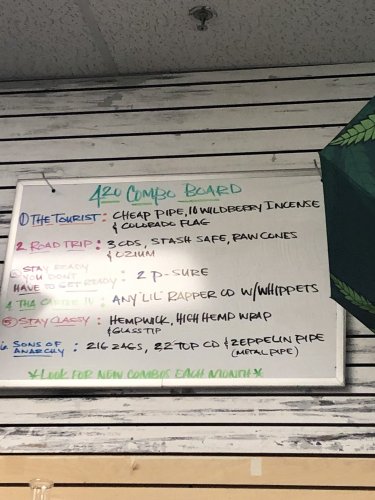 420 COMBO BOARD
① THE TOURIST: CHEAP PIPE, 10 WILDBERRY INCENSE
& COLORADO FLAG
2 ROAD TRIP: 3 CDS, STASH SAFE, RAW CONES
& OZIUM
③ STAY READY
YOU DON'T
HAVE TO GET READY: 2 P-SURE
4 THA CARTER IV: ANY "LIL" RAPPER CD W/WHIPPETS
⑤ STAY CLASSY: HEMPWICK, HIGH HEMP WRAP
& GLASS TIP
6 SONS OF
ANARCHY: 2 ZAGS, ZZ TOP CD & ZEPPELIN PIPE
(METAL PIPE)
*LOOK FOR NEW COMBOS EACH MONTH*